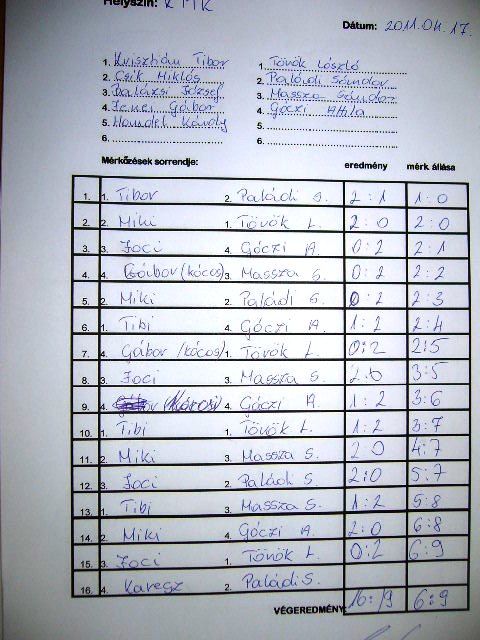 Helyszín: KMK
Dátum: 2011.04.17.
1. Krisztián Tibor 1. Török László
2. Csík Miklós 2. Paládi Sándor
3. Balázsi József 3. Massza Sándor
4. Jenei Gábor 4. Góczi Attila
5. Handel Károly 5.
6. 6.
Mérkőzések sorrendje: eredmény mérk. állása
1. 1. Tibor 2. Paládi S. 2:1 1:0
2. 2. Miki 1. Török L. 2:0 2:0
3. 3. Joci 4. Góczi A. 0:2 2:1
4. 4. Gábor (kócos) 3. Massza S. 0:2 2:2
5. 2. Miki 2. Paládi S. 0:2 2:3
6. 1. Tibi 4. Góczi A. 1:2 2:4
7. 4. Gábor (kócos) 1. Török L. 0:2 2:5
8. 3. Joci 3. Massza S. 2:0 3:5
9. 4. 4. Góczi A. 1:2 3:6
10. 1. Tibi 1. Török L. 1:2 3:7
11. 2. Miki 3. Massza S. 2 0 4:7
12. 3. Joci 2. Paládi S. 2:0 5:7
13. 1. Tibi 3. Massza S. 1:2 5:8
14. 2. Miki 4. Góczi A. 2:0 6:8
15. 3. Joci 1. Török L. 0:2 6:9
16. 4. Karesz 2. Paládi S.
VÉGEREDMÉNY: 16:19 6:9